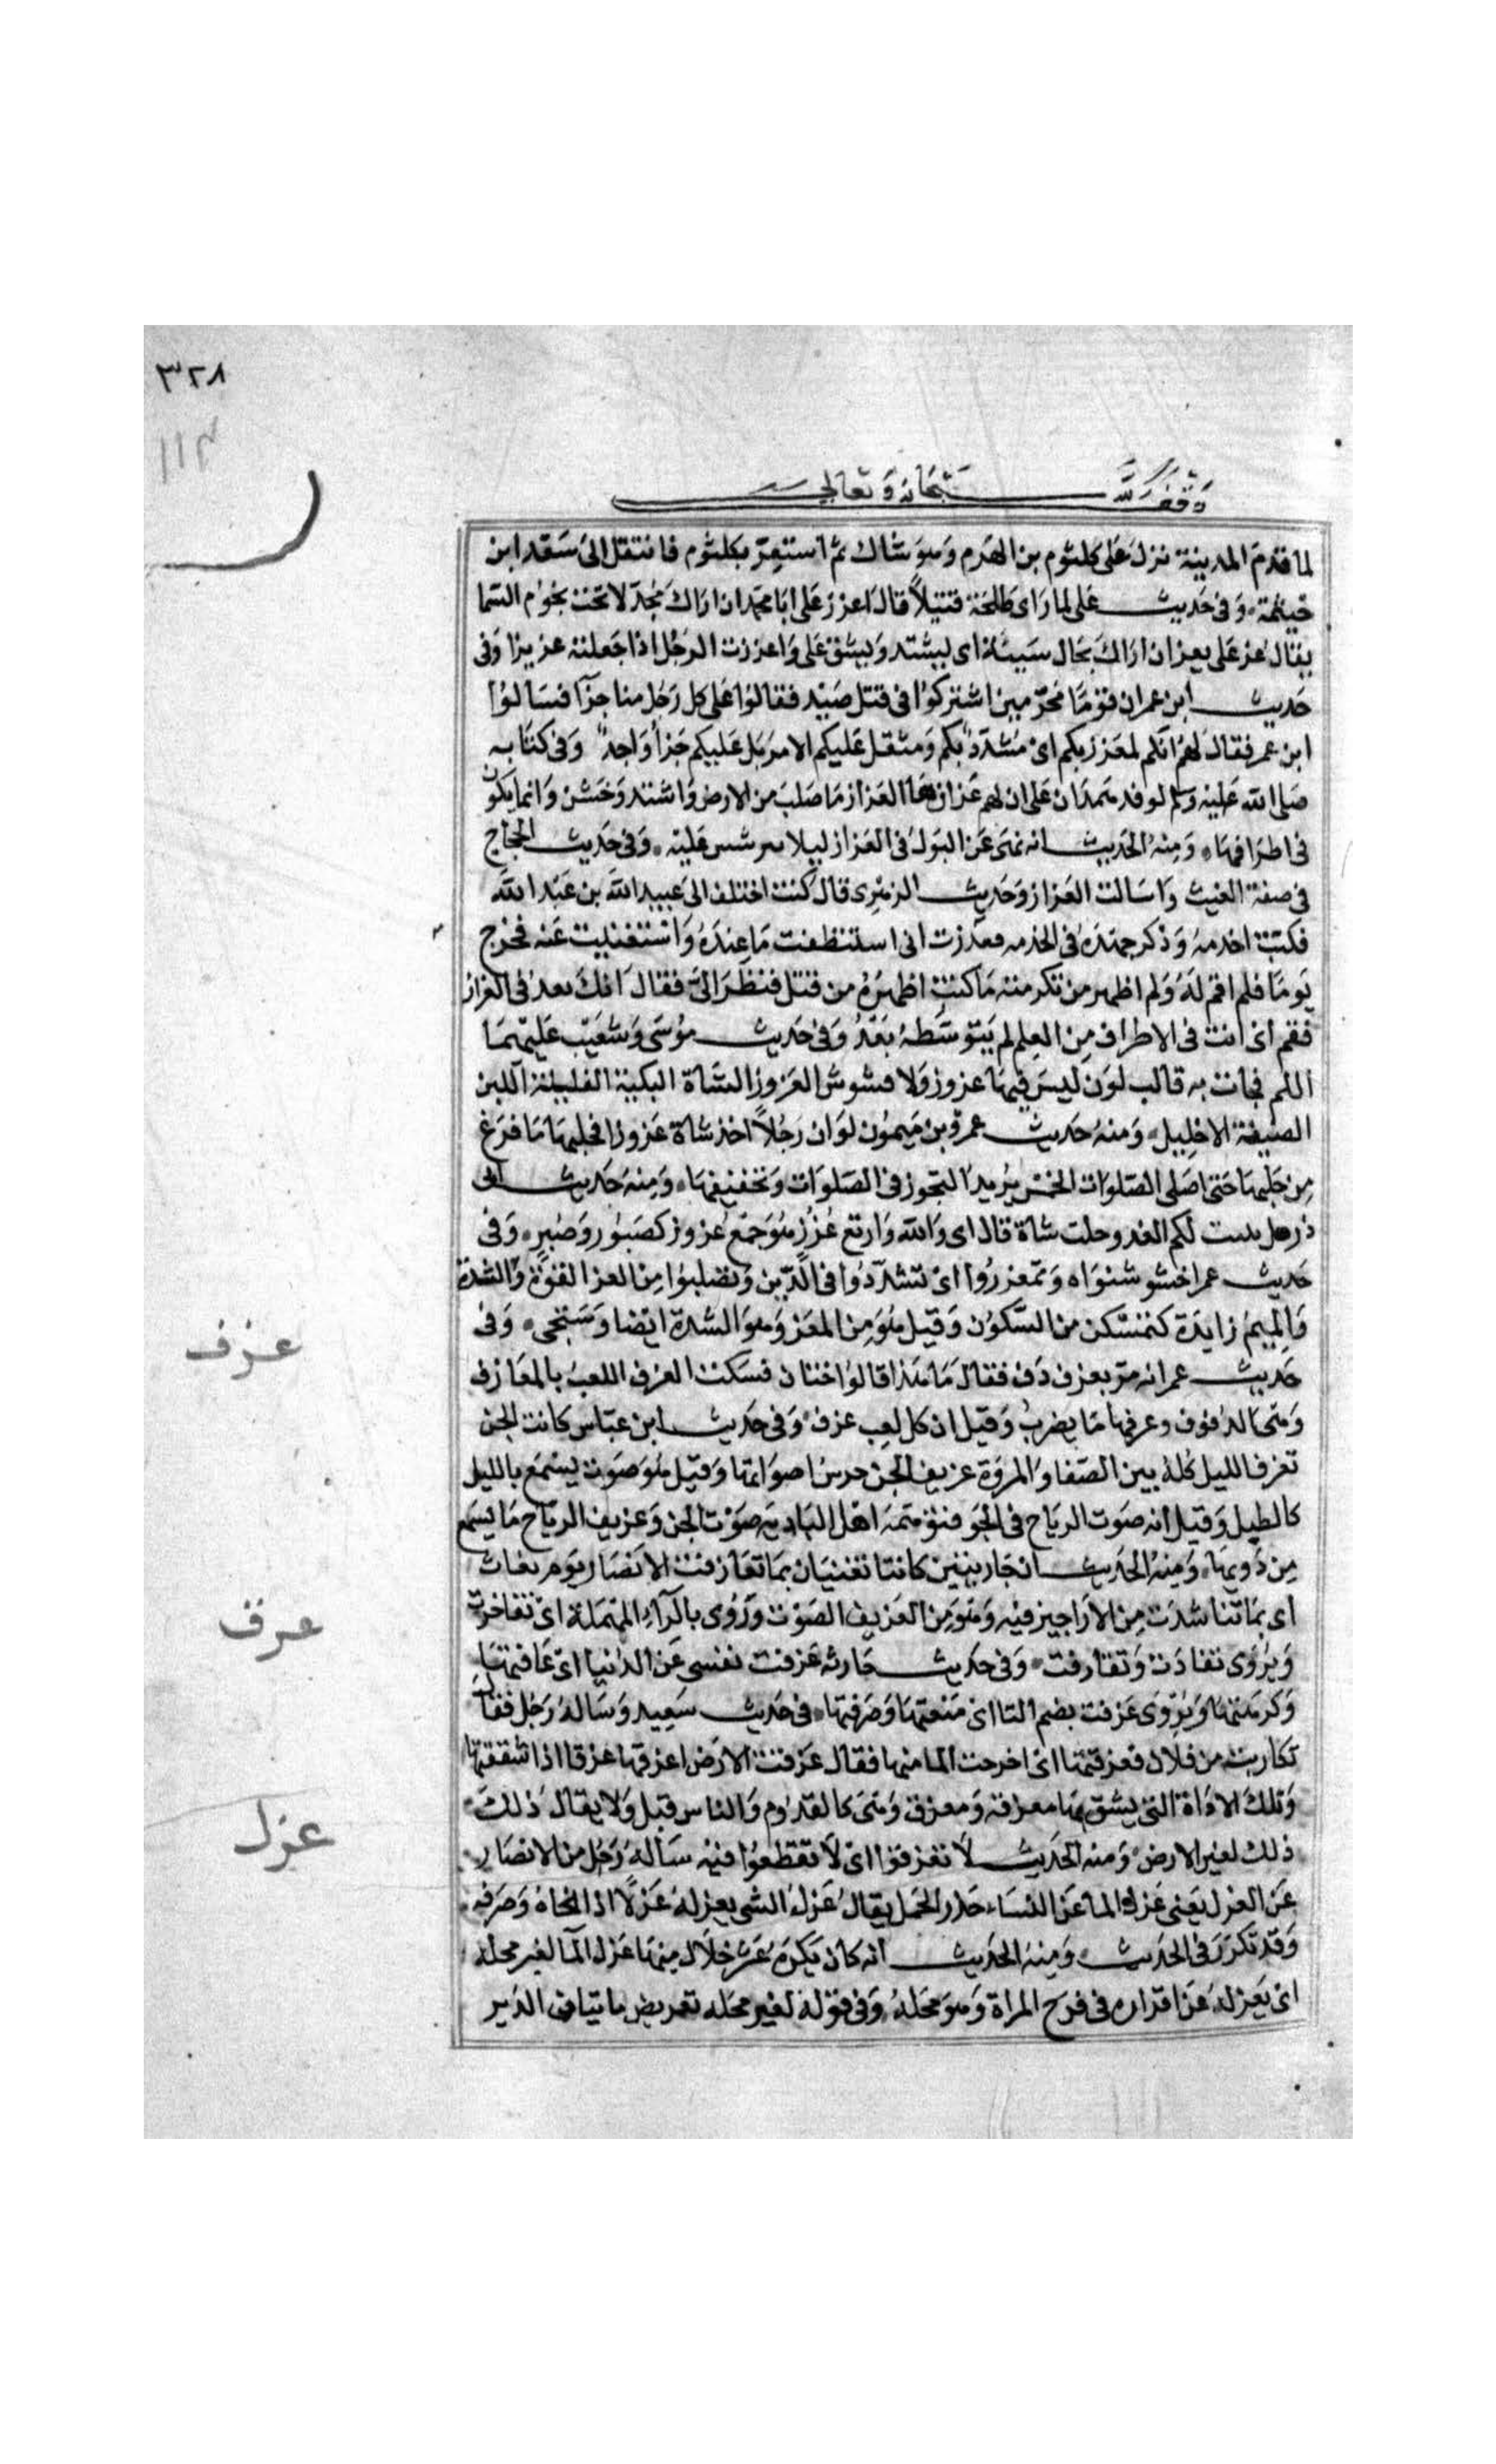 ٣٢٨
١١٣
وقف لله سبحانه وتعالى
لما قدم المدينة نزل على كلثوم بن الهدم وهو شاك ثم استعز بكلثوم فانتقل الى سعد ابن
خيثمة وفى حديث على لما راى طلحة قتيلا قال اعزز على ابا محمد ان اراك مجدلا تحت نجوم السما
يقال عز على يعز ان اراك بحال سيئة اى يشتد ويشق على واعززت الرجل اذا جعلته عزيزا وفى
حديث ابن عمر ان قوما محرمين اشتركوا فى قتل صيد فقالوا على كل رجل منا جزآ فسالوا
ابن عمر فقال لهم انكم لمعزز بكم اى مشدد بكم ومثقل عليكم الامر بل عليكم جزأ واحد وفى كتابه
صلى الله عليه وسلم لوفد همدان على ان لهم عزازها العزاز ما صلب من الارض واشتد وخشن وانما يكون
فى اطرافها ومنه الحديث انه نهى عن البول فى العزاز ليلا يترشش عليه وفى حديث الحجاج
فى صفة الغيث واسالت العزاز وحديث الزهرى قال كنت اختلف الى عبيد الله بن عبد الله
فكنت اخدمه وذكر جهده فى الخدمه فقدرت انى استنظفت ما عنده واستغنيت عنه فخرج
يوما فلم اقم له ولم اظهر من تكرمته ما كنت اظهره من قبل فنظر الى فقال انك بعد فى العزاز
فقم اى انت فى الاطراف من العلم لم يتوسطه بعد وفى حديث موسى وشعيب عليهما
السلم فجات به قالب لون ليس فيها عزوز ولا فشوش العزوز الشاة البكية القليلة اللبن
الضيقة الاحليل ومنه حديث عمرو بن ميمون لو ان رجلا اخذ شاة عزوزا فحلبها ما فرغ
من حلبها حتى اصلى الصلوات الخمس يريد التجوز فى الصلوات وتخفيفها ومنه حديث ابى
ذر هل يثبت لكم العدو حلب شاة قال اى والله واربع عزز هو جمع عزوز كصبور وصبر وفى
حديث عمر اخشوشنوا وتمعززوا اى تشددوا فى الدين وتصلبوا من العز القوة والشدة
والميم زايدة كتمسكن من السكون وقيل هو من المعز وهو الشدة ايضا وستجى وفى
عزف
حديث عمر انه مر بعزف دف فقال ما هذا قالوا ختان فسكت العزف اللعب بالمعازف
وهى الدفوف وغيرها مما يضرب وقيل ان كل لعب عزف وفى حديث ابن عباس كانت الجن
تعزف الليل كله بين الصفا والمروة عزيف الجن جرس اصواتها وقيل هو صوت يسمع بالليل
كالطبل وقيل انه صوت الرياح فى الجو فتوهمه اهل البادية صوت الجن وعزيف الرياح ما يسمع
من دويها ومنه الحديث ان جاريتين كانتا تغنيان بما تعازفت الانصار يوم بعاث
عزق
اى بما تناشدت من الاراجيز فيه وهو من العزيف الصوت وروى بالرآء المهملة اى تفاخرت
ويروى تقاذت وتقارفت وفى حديث حارثه عزفت نفسى عن الدنيا اى عافتها
وكرهتها ويروى عزفت بضم التا اى منعتها وصرفتها فى حديث سعيد وساله رجل فقال
تكاريت من فلان فعزقتها اى اخرجت الما منها فقال عزقت الارض اعزقها عزقا اذا شققتها
وتلك الاداة التى يشق بها معزقة ومعزق وهى كالقدوم والفاس قيل ولا يقال ذلك
عزل
ذلك لغير الارض ومنه الحديث لا تعزقوا اى لا تقطعوا فيه ساله رجل من الانصار
عن العزل يعنى عزل الما عن النساء حذر الحمل يقال عزل الشى يعزله عزلا اذا نحاه وصرفه
وقد تكرر فى الحديث ومنه الحديث انه كان يكره عشر خلال منها عزل المآ لغير محله
اى يعزله عن اقراره فى فرج المراة وهو محله وفى قوله لغير محله تعريض باتيان الدبر